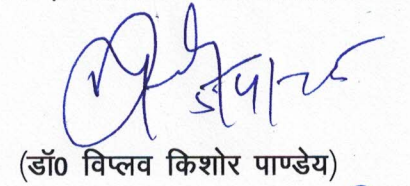 (डॉ0 विप्लव किशोर पाण्डेय)